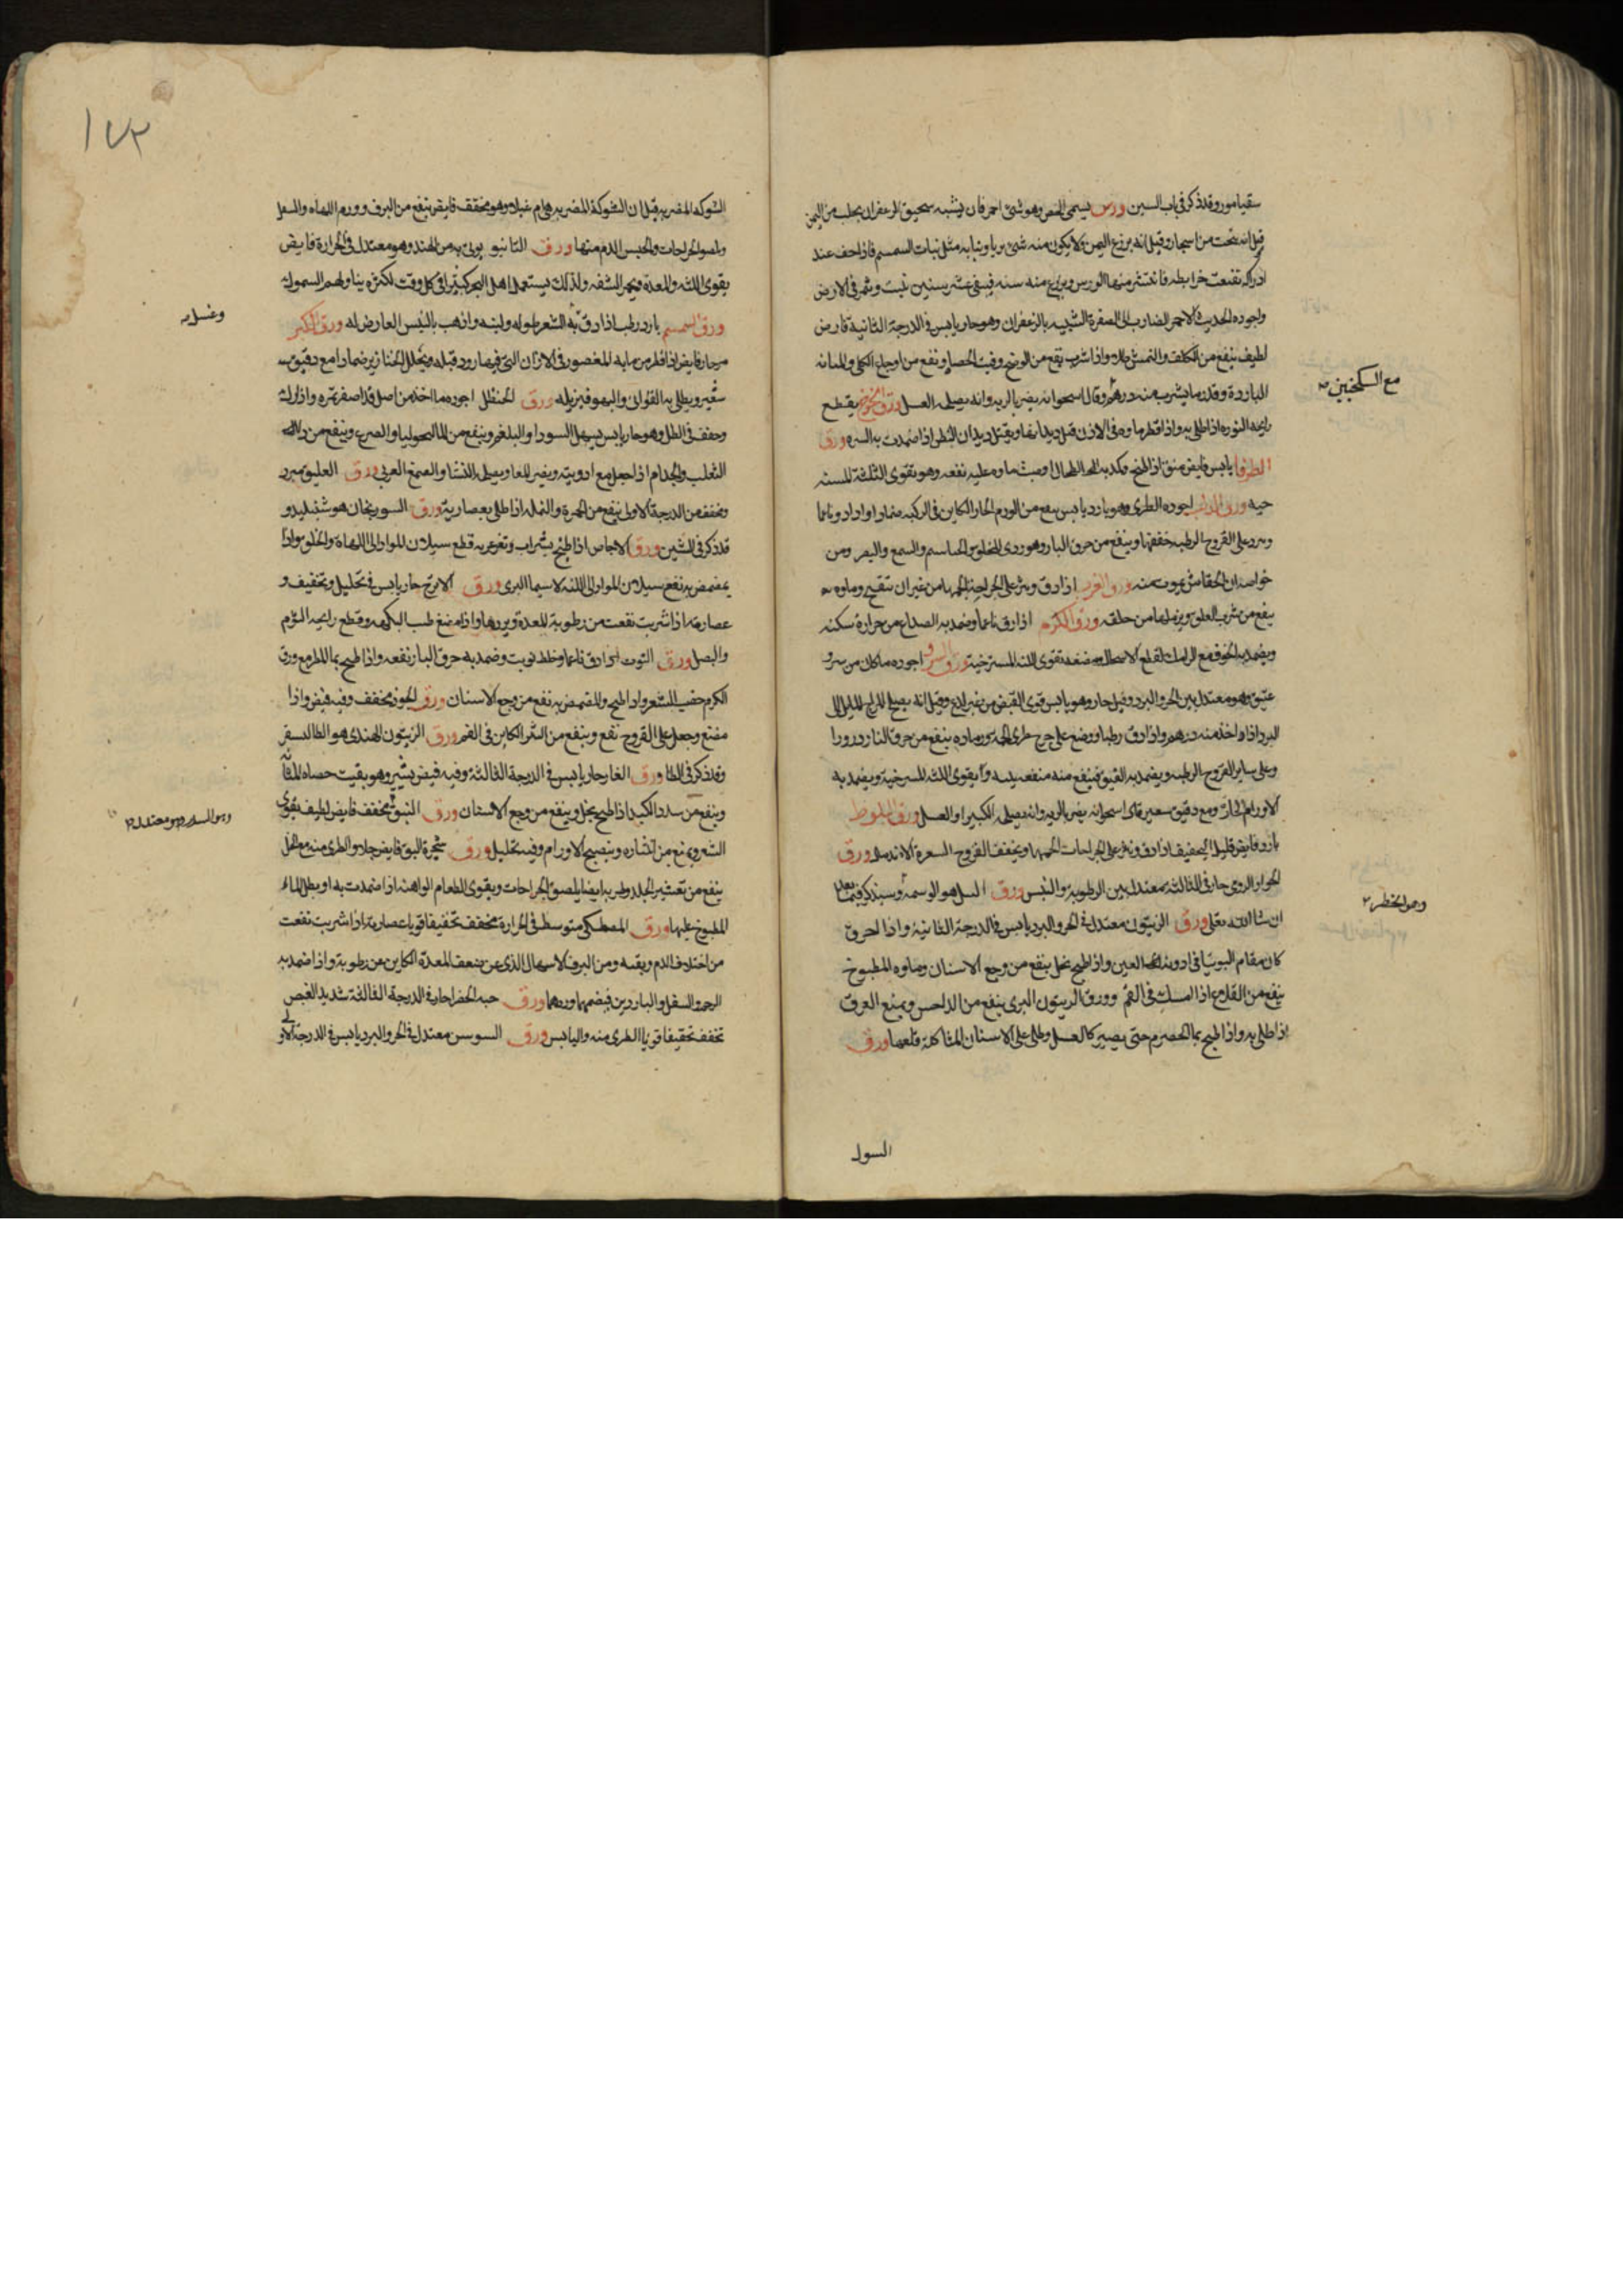 سقيامور وقد ذكر في باب السين ورس يسمى الحص وهو شئ احمر قان يشبه سحيق الزعفران يجلب من اليمن
قيل انه ينحت من اشجاره وقيل انه يزرع باليمن ولا يكون منه شئ بريا ونباته مثل نبات السمسم فاذا جف عند
ادراكه تفتقت خرايطه فانتثر منها الورس ويزرع منه سنة فيبقى عشر سنين ينبت ويثمر في الارض
واجوده الحديث الاحمر الضارب الى الصفرة الشبيه بالزعفران وهو حار يابس في الدرجة الثانية قابض
لطيف ينفع من الكلف والنمش طلاء واذا شرب نفع من الوضح وفتت الحصاة ونفع من اوجاع الكلى والمثانة
مع السكنجبين
الباردة وقدر ما يشرب منه درهم وقال اسحق انه يضر بالرية وانه يصلحه العسل ورق الخوخ يقطع
رايحة النورة اذا طلي به واذا قطر ماوه في الاذن قتل ديدانها ويقتل ديدان البطن اذا ضمدت به السرة ورق
الطرفا يابس قابض منق اذا طبخ وكمد به الطحال او صب ماوه عليه نفعه وهو يقوى اللثة المسترخية
ورق الدلب اجوده الطرى وهو بارد يابس ينفع من الورم الحار الكاين في الركبة ضمادا واذا دق ناعما
وذر على القروح الرطبة جففها وينفع من حرق النار وهو ردى للحلق والحواس والسمع والبصر ومن
خواصه ان الخفافيش تموت منه ورق الغرب اذا دق وذر على الجراحة الحمها من غير ان تتقيح وماوه
ينفع من شرب العلق ويزيلها من حلقه ورق الكرم اذا دق ناعما وضمد به الصداع من حرارة سكنه
ويضمد به الجوف مع الرامك لقطع الاسهال ومضغه يقوى اللثة المسترخية ورق السرو اجوده ما كان من سرو
عتيق وهو معتدل بين الحر والبرد وقيل حار وهو يابس قوى القبض من غير لذع وقيل انه يصلح المزاج المايل الى
البرد اذا اخذ منه درهم واذا دق رطبا ووضع على جرح طرى الحمه ورماده ينفع من حرق النار ذرورا
وعلى ساير القروح الرطبة ويضمد به الفتوق فينفع منه منفعة بينة ويقوى اللثة المسترخية ويضمد به
الاورام الحارة مع دقيق شعير قال اسحق انه يضر بالرية وانه يصلحه الكثيرا والعسل ورق البلوط
بارد قابض قليل التجفيف اذا دق وذر على الجراحات الحمها ويجفف القروح العسرة الاندمال ورق
الحوار الرومى حار في الثالثة معتدل بين الرطوبة واليبس ورق النيل هو الوسمة وسيذكر فيما بعد
وهو الخطر
ان شا الله تعالى ورق الزيتون معتدل في الحر والبرد يابس في الدرجة الثانية واذا احرق
كان مقام التوتيا في ادوية العين واذا طبخ بخل ينفع من وجع الاسنان وماوه المطبوخ
ينفع من القلاع اذا امسك في الفم وورق الزيتون البرى ينفع من الداحس ويمنع العرق
اذا طلي به واذا طبخ بما الحصرم حتى يصير كالعسل وطلى على الاسنان المتاكلة قلعها ورق
السول
١٧٢
الشوكة المصرية قيل ان الشوكة المصرية هي ام غيلان وهو مجفف قابض ينفع من النزف وورم اللهاة والسفل
ويلصق الجراحات ويحبس الدم منها ورق التانبو يوتى به من الهند وهو معتدل في الحرارة قابض
يقوى اللثة والمعدة ويحمر الشفة ولذلك يستعمله اهل البحر كثيرا في كل وقت لكثرة تناولهم السموك
ورق السمسم بارد رطب اذا دق به الشعر طوله ولينه واذهب باليبس العارض له ورق الكبر
وغسل به
مر حار قابض اذا قطر من مايه المعصور في الاذان التي فيها دود قتله ويحلل الخنازير ضمادا مع دقيق
شعير ويطلى به القوابى والبهق فيزيله ورق الحنظل اجوده ما اخذ من اصل قد اصفر ثمره واذا ترك
وجفف في الظل وهو حار يابس يسهل السودا والبلغم وينفع من الماليخوليا والصرع وينفع من داء
الثعلب والجذام اذا جعل مع ادويته ويضر المعا ويصلحه النشا والصمغ العربى ورق العليق مبرد
ومجفف من الدرجة الاولى ينفع من الحمرة والنملة اذا طلى بعصارته ورق السورنجان هو شنبليد و
قد ذكر في الشين ورق الاجاص اذا طبخ بشراب وتغرغر به قطع سيلان المواد الى اللهاة والحلق واذا
يمضمض به نفع سيلان المواد الى اللثة لا سيما البرى ورق الاترج حار يابس في تحليل وتجفيف و
عصارته اذا شربت نفعت من رطوبة المعدة وبردها واذا مضغ طيب النكهة وقطع رايحة الثوم
والبصل ورق التوت اذا دق ناعما وخلط بزيت وضمد به حرق النار نفعه واذا طبخ بما المطر مع ورق
الكرم خضب الشعر واذا طبخ والتمضمض به نفع من وجع الاسنان ورق الجوز مجفف وفيه قبض واذا
مضغ وجعل على القروح نفع وينفع من البثر الكاين في الفم ورق الزيتون الهندى هو الطاليسفر
وقد ذكر في الطا ورق الغار حار يابس في الدرجة الثالثة وفيه قبض يسير وهو يفتت حصاة المثانة
وينفع من سدد الكبد اذا طبخ بخل وينفع من وجع الاسنان ورق النبق مجفف قابض لطيف يقوى
وهو السدر وهو معتدل
الشعر ويمنع من انتثاره وينضج الاورام وفيه تحليل ورق شجرة البق قابض جلاء والطرى منه مع الخل
ينفع من تقشير الجلد وطريه ايضا يلصق الجراحات ويقوى العظام الواهنة اذا ضمدت به او بطل الماء
المطبوخ عليها ورق المصطكى متوسط في الحرارة مجفف تجفيفا قويا عصارته اذا شربت نفعت
من اختلاف الدم ونفثه ومن النزف والاسهال الذى عن ضعف المعدة الكاين عن رطوبة واذا ضمد به
الرحم والسفل والبارزين قبضهما وردهما ورق حبة الخضرا حار في الدرجة الثالثة شديد القبض
تجفف تجفيفا قويا الطرى منه واليابس ورق السوسن معتدل في الحر والبرد يابس في الدرجة الاولى